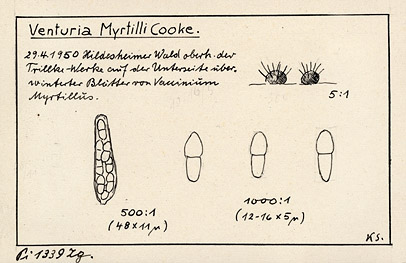 Venturia Myrtilli Cooke.
29.4.1950 Hildesheimer Wald oberh. der
Trillke-Werke auf der Unterseite über-
winterter Blätter von Vaccinium
Myrtillus.
5:1
500:1
(48×11µ)
1000:1
(12-16×5µ)
KS.
Pi. 1339 Zg.